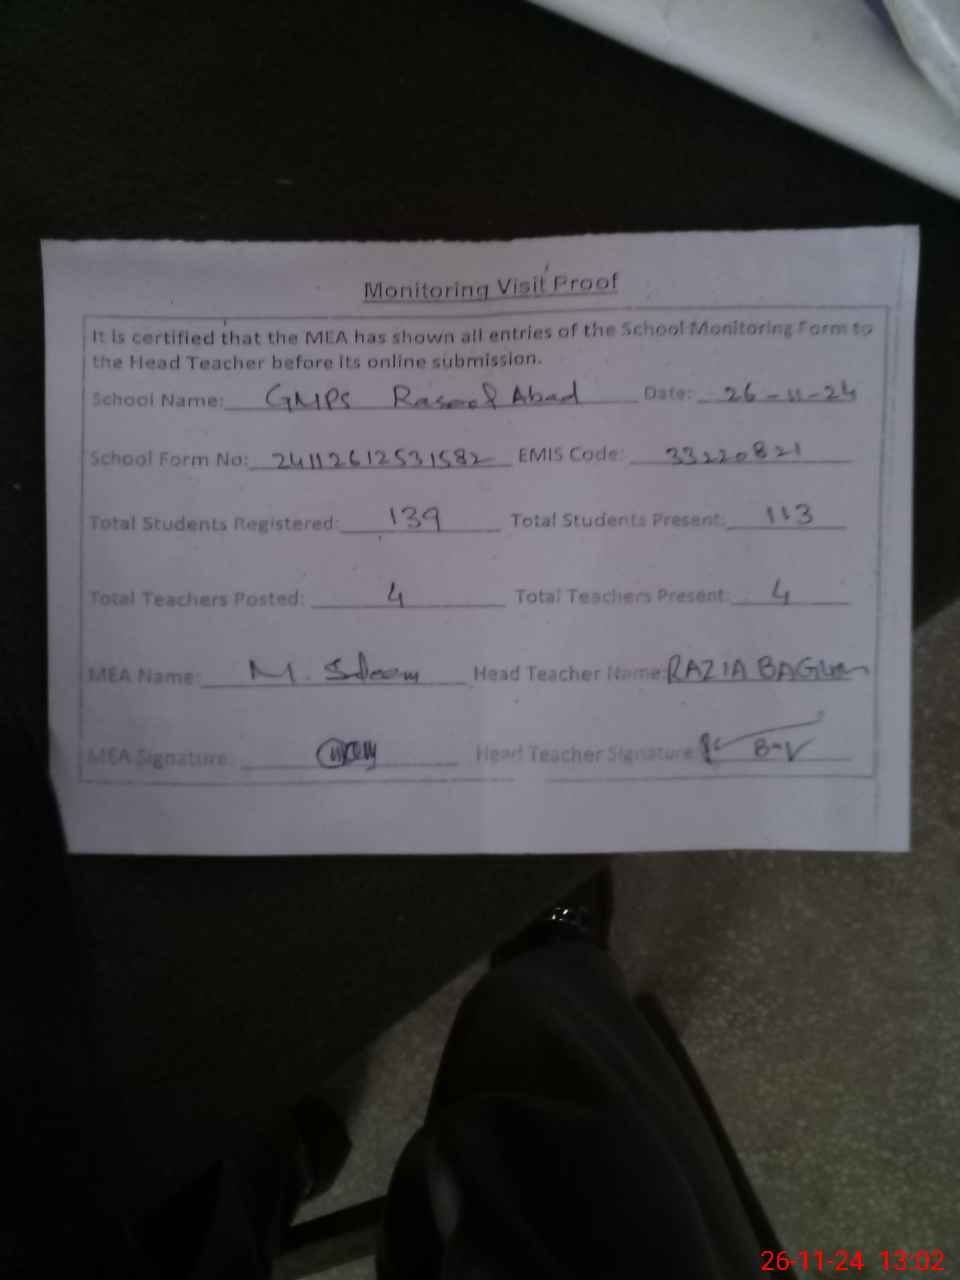 Monitoring Visit Proof
It is certified that the MEA has shown all entries of the School Monitoring Form to
the Head Teacher before its online submission.
School Name: GMPS Rasool Abad Date: 26-11-24
School Form No: 24112612531582 EMIS Code: 33220821
Total Students Registered: 139 Total Students Present: 113
Total Teachers Posted: 4 Total Teachers Present: 4
MEA Name: M. Saleem Head Teacher Name: RAZIA
MEA Signature: Head Teacher Signature:
26-11-24 13:02